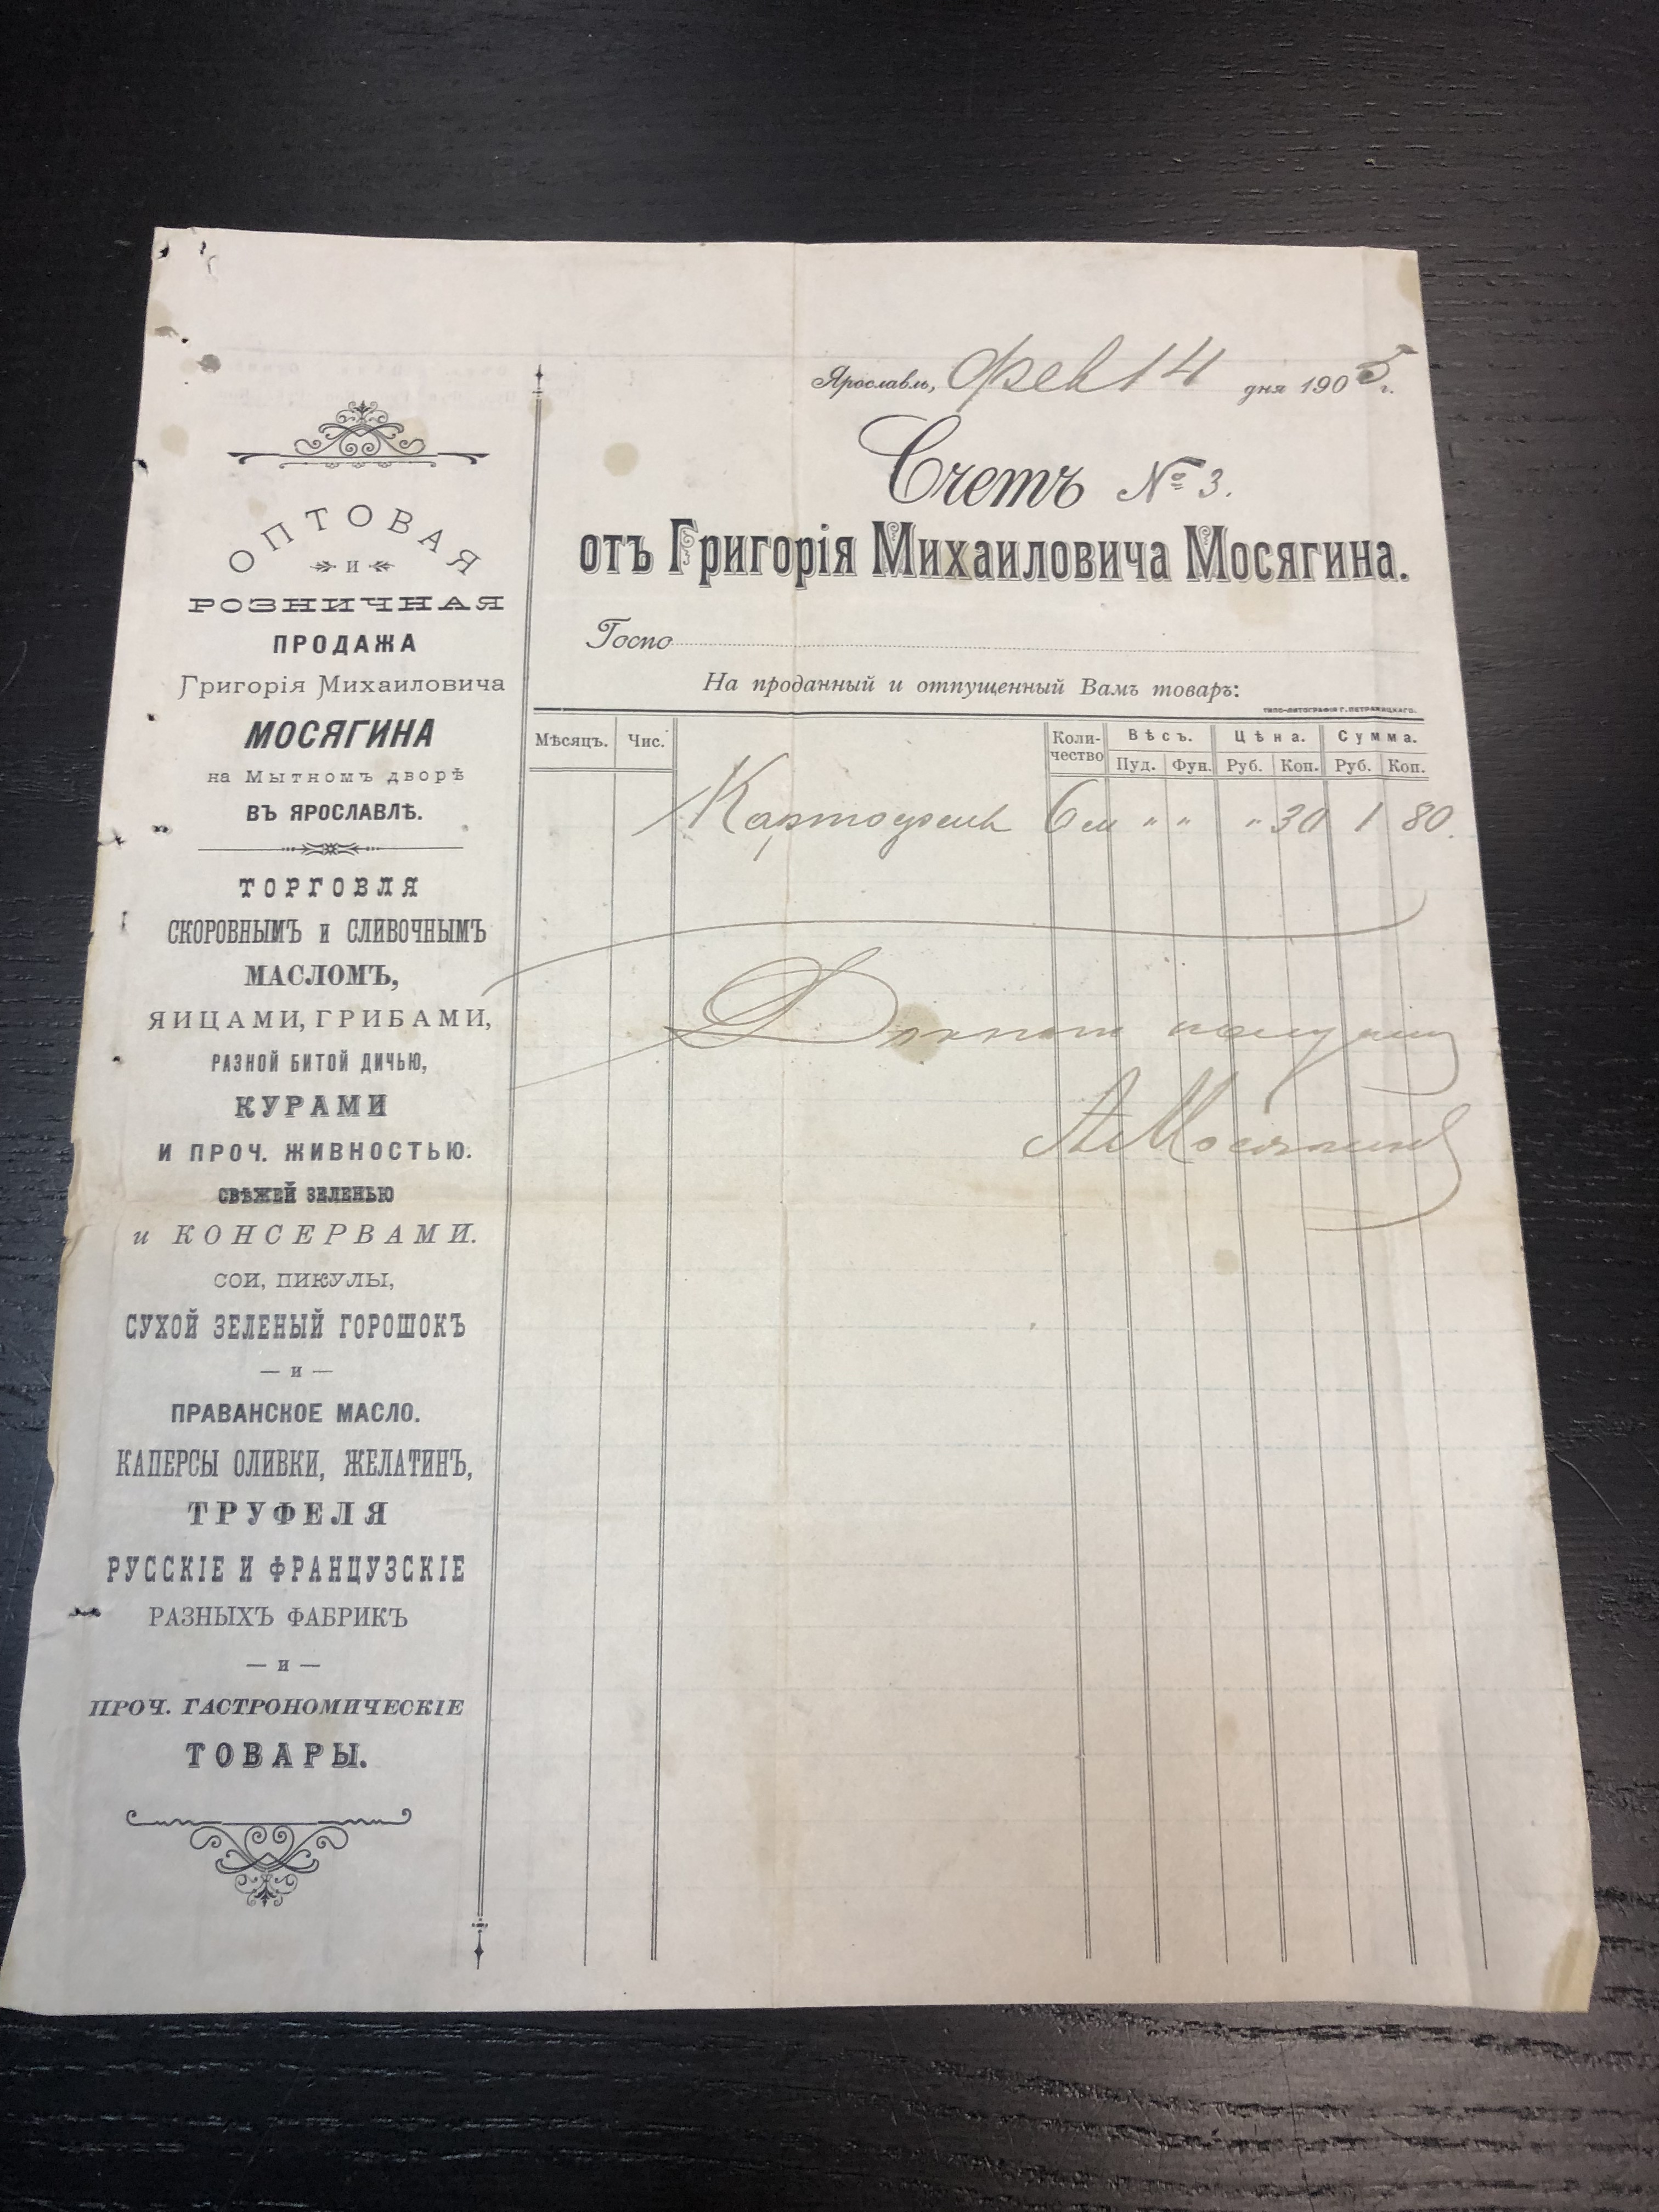 Ярославль, Фев 14 дня 1905 г.
Счетъ № 3.
отъ Григорія Михаиловича Мосягина.
Госпо
На проданный и отпущенный Вамъ товаръ:
ТИПО-ЛИТОГРАФІЯ Г. ПЕТРАЖИЦКАГО.
Мѣсяцъ. Чис. Количество Вѣсъ. Цѣна. Сумма.
Пуд. Фун. Руб. Коп. Руб. Коп.
Картофель 6 " " " 30 1 80.
получил
А Мосягинъ
ОПТОВАЯ
И
РОЗНИЧНАЯ
ПРОДАЖА
Григорія Михаиловича
МОСЯГИНА
на Мытномъ дворѣ
ВЪ ЯРОСЛАВЛѢ.
ТОРГОВЛЯ
СКОРОВНЫМЪ и СЛИВОЧНЫМЪ
МАСЛОМЪ,
ЯИЦАМИ, ГРИБАМИ,
РАЗНОЙ БИТОЙ ДИЧЬЮ,
КУРАМИ
И ПРОЧ. ЖИВНОСТЬЮ.
СВѢЖЕЙ ЗЕЛЕНЬЮ
и КОНСЕРВАМИ.
СОИ, ПИКУЛЫ,
СУХОЙ ЗЕЛЕНЫЙ ГОРОШОКЪ
— и —
ПРАВАНСКОЕ МАСЛО.
КАПЕРСЫ ОЛИВКИ, ЖЕЛАТИНЪ,
ТРУФЕЛЯ
РУССКІЕ И ФРАНЦУЗСКІЕ
РАЗНЫХЪ ФАБРИКЪ
— и —
ПРОЧ. ГАСТРОНОМИЧЕСКІЕ
ТОВАРЫ.